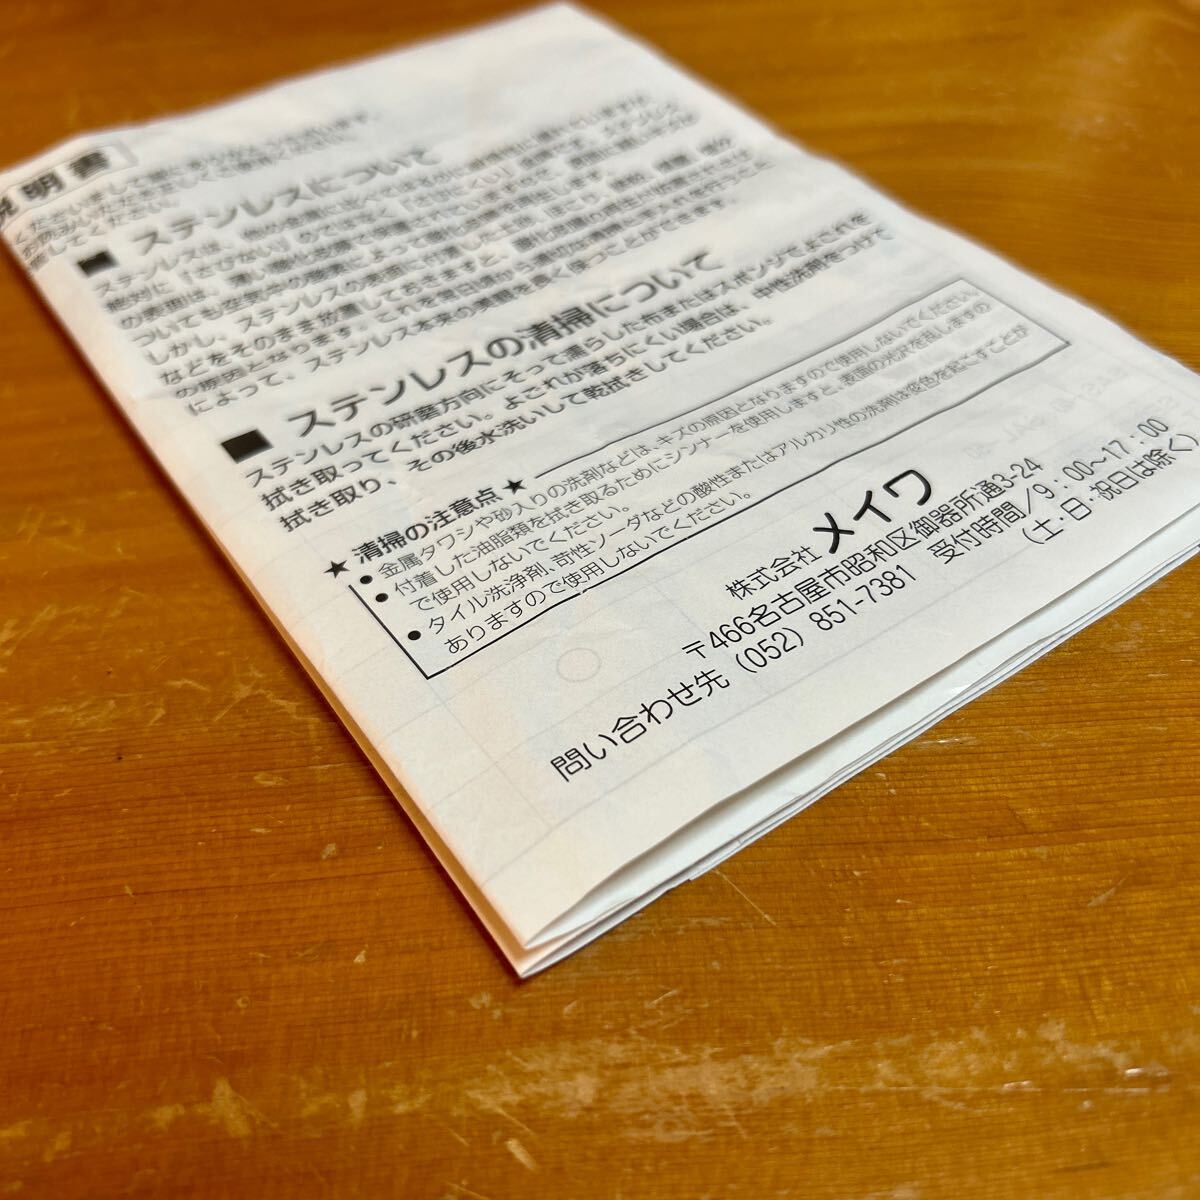 説明書
■ ステンレスについて
ステンレスは、他の金属に比べて
絶対に「さびない」のではなく「さびにくい」金属です。ステンレス
の表面は、薄い酸化皮膜で保護
ついても空気中の酸素によって酸化皮膜が再生します。
しかし、ステンレスの表面に付着した
などをそのまま放置しておきますと、酸化皮膜の再生が
の原因となります。これを毎日頃から
によって、ステンレス本来の美観を長く保つことができます。
■ ステンレスの清掃について
ステンレスの研磨方向にそって濡らした布またはスポンジでよごれを
拭き取ってください。よごれが落ちにくい場合は、中性洗剤をつけて
拭き取り、その後水洗いして乾拭きしてください。
★ 清掃の注意点 ★
● 金属タワシや砂入りの洗剤などは、キズの原因となりますので使用しないでください。
● 付着した油脂類を拭き取るためにシンナーを使用しますと、表面の光沢を乱しますの
で使用しないでください。
● タイル洗浄剤、苛性ソーダなどの酸性またはアルカリ性の洗剤は変色を起こすことが
ありますので使用しないでください。
株式会社 メイワ
〒466名古屋市昭和区御器所通3-24
問い合わせ先 (052) 851-7381 受付時間/9:00~17:00
(土・日・祝日は除く)